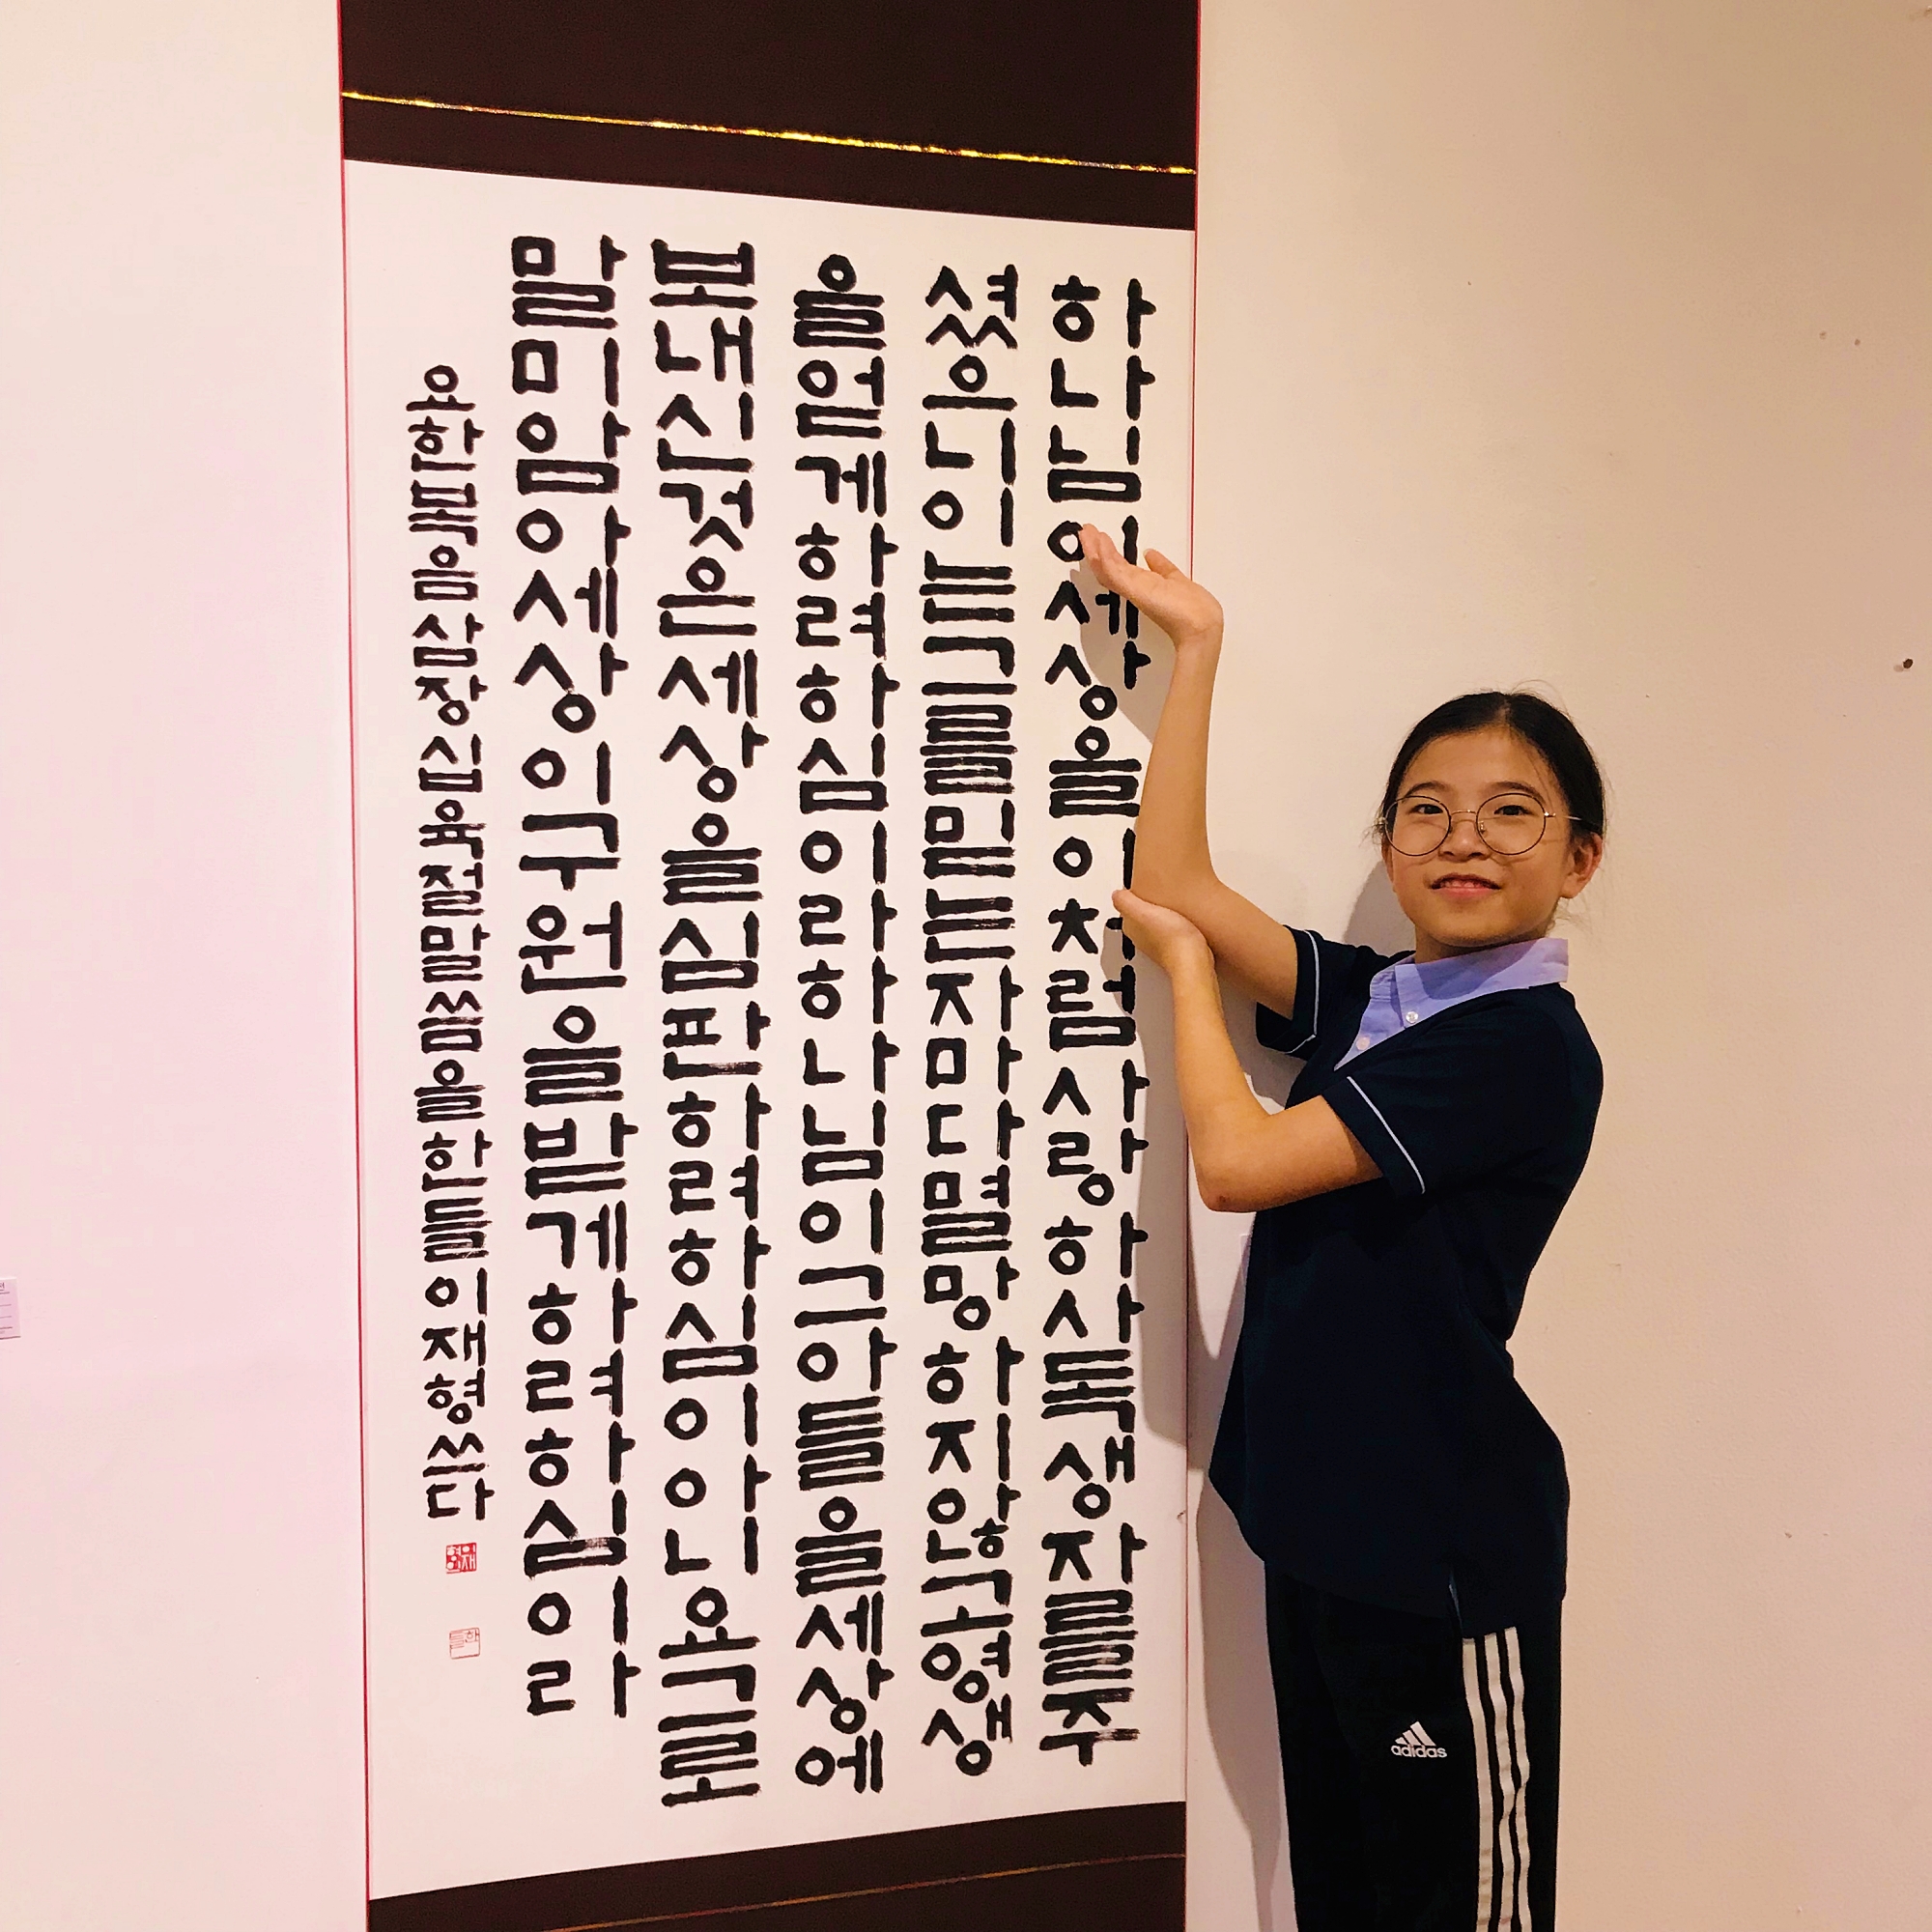 하나님이세상을이처럼사랑하사독생자를주
셨으니이는그를믿는자마다멸망하지않고영생
을얻게하려하심이라하나님이그아들을세상에
보내신것은세상을심판하려하심이아니요그로
말미암아세상이구원을받게하려하심이라
요한복음삼장십육절말씀을한들이재형쓰다
한들
adidas